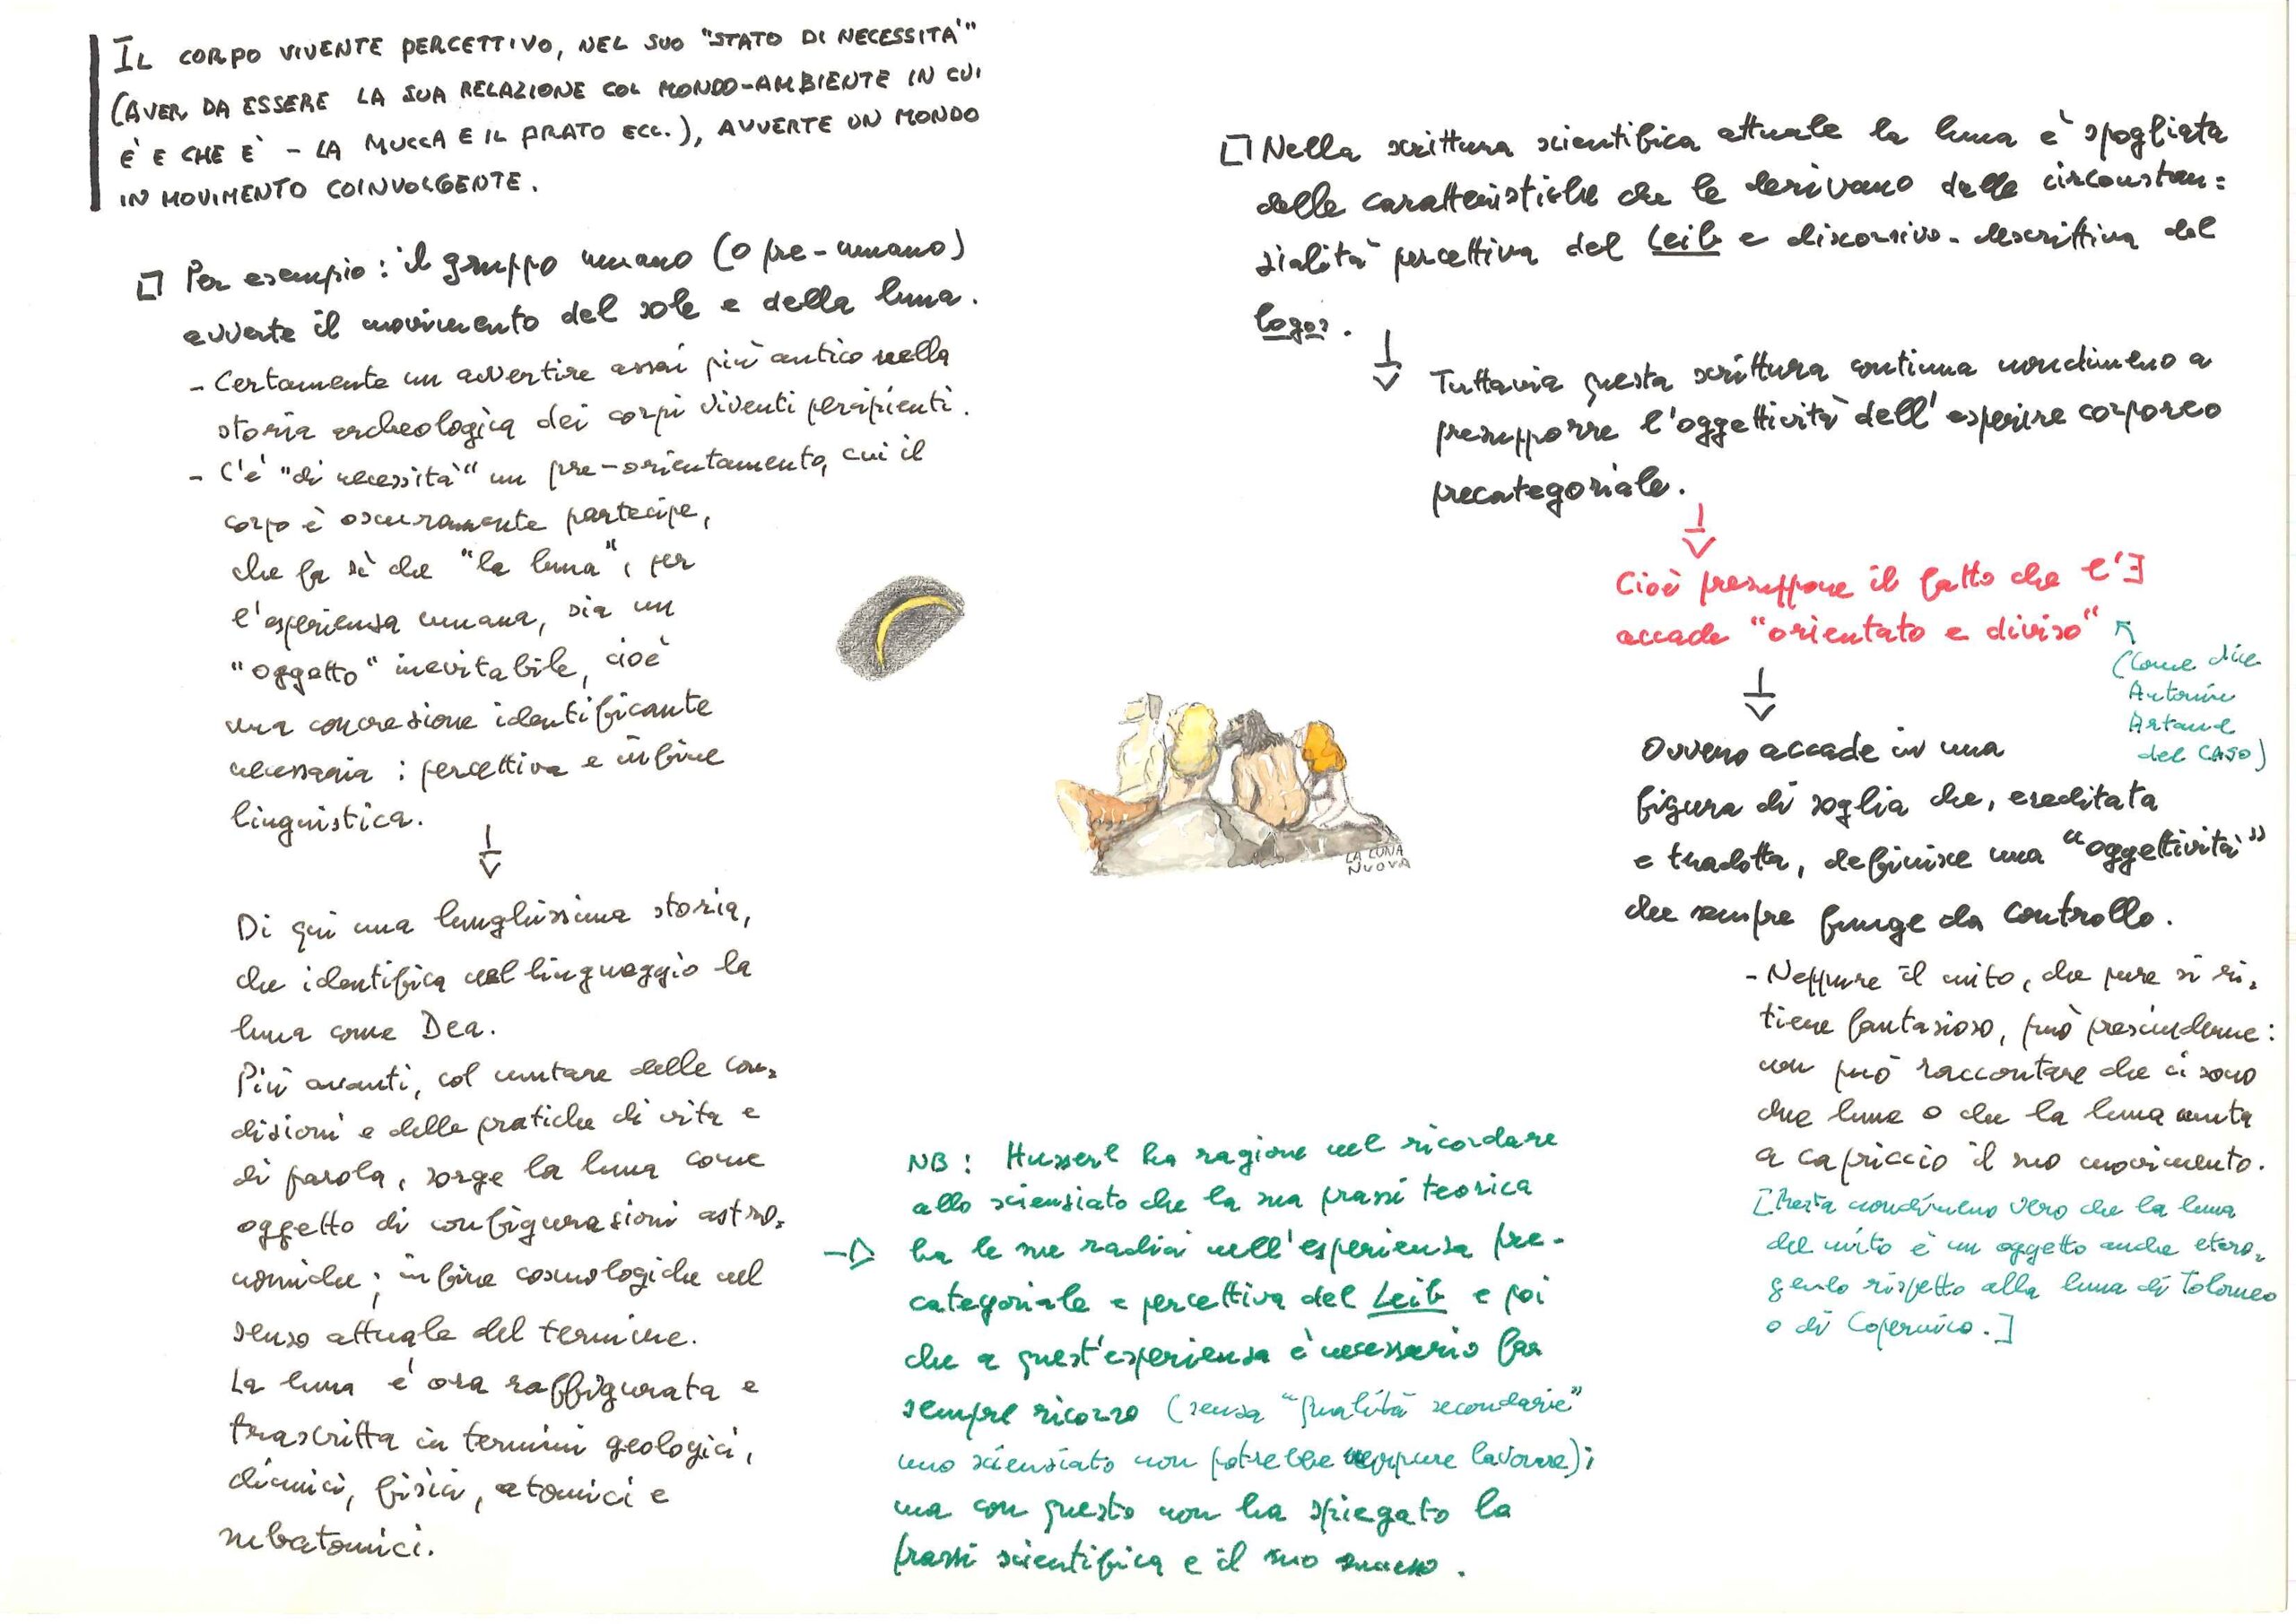 IL CORPO VIVENTE PERCETTIVO, NEL SUO "STATO DI NECESSITÀ"
(AVER DA ESSERE LA SUA RELAZIONE COL MONDO-AMBIENTE IN CUI
È E CHE È - LA MUCCA E IL PRATO ECC.), AVVERTE UN MONDO
IN MOVIMENTO COINVOLGENTE.
Per esempio: il gruppo umano (o pre-umano)
avverte il movimento del sole e della luna.
- Certamente un avvertire assai più antico nella
storia archeologica dei corpi viventi percipienti.
- C'è "di necessità" un pre-orientamento, cui il
corpo è oscuramente partecipe,
che fa sì che "la luna", per
l'esperienza umana, sia un
"oggetto" inevitabile, cioè
una concrezione identificante
necessaria: percettiva e infine
linguistica.
Di qui una lunghissima storia,
che identifica nel linguaggio la
luna come Dea.
Più avanti, col mutare delle con=
dizioni e delle pratiche di vita e
di parola, sorge la luna come
oggetto di configurazioni astro=
nomiche; infine cosmologiche nel
senso attuale del termine.
La luna è ora raffigurata e
trascritta in termini geologici,
chimici, fisici, atomici e
subatomici.
LA LUNA
NUOVA
NB: Husserl ha ragione nel ricordare
allo scienziato che la sua prassi teorica
ha le sue radici nell'esperienza pre-
categoriale e percettiva del Leib e poi
che a quest'esperienza è necessario far
sempre ricorso (senza "qualità secondarie"
uno scienziato non potrebbe neppure lavorare);
ma con questo non ha spiegato la
prassi scientifica e il suo successo.
Nella scrittura scientifica attuale la luna è spogliata
delle caratteristiche che le derivano dalle circostan=
zialità percettiva del Leib e discorsivo-descrittiva del
logos.
Tuttavia questa scrittura continua nondimeno a
presupporre l'oggettività dell'esperire corporeo
precategoriale.
Cioè presuppone il fatto che l'∃
accade "orientato e diviso"
(come dice
Antonin
Artaud
del CASO)
Ovvero accade in una
figura di soglia che, ereditata
e tradotta, definisce una "oggettività"
che sempre funge da controllo.
- Neppure il mito, che pure si ri=
tiene fantasioso, può prescinderne:
non può raccontare che ci sono
due lune o che la luna muta
a capriccio il suo movimento.
[Resta nondimeno vero che la luna
del mito è un oggetto anche etero=
geneo rispetto alla luna di Tolomeo
o di Copernico.]